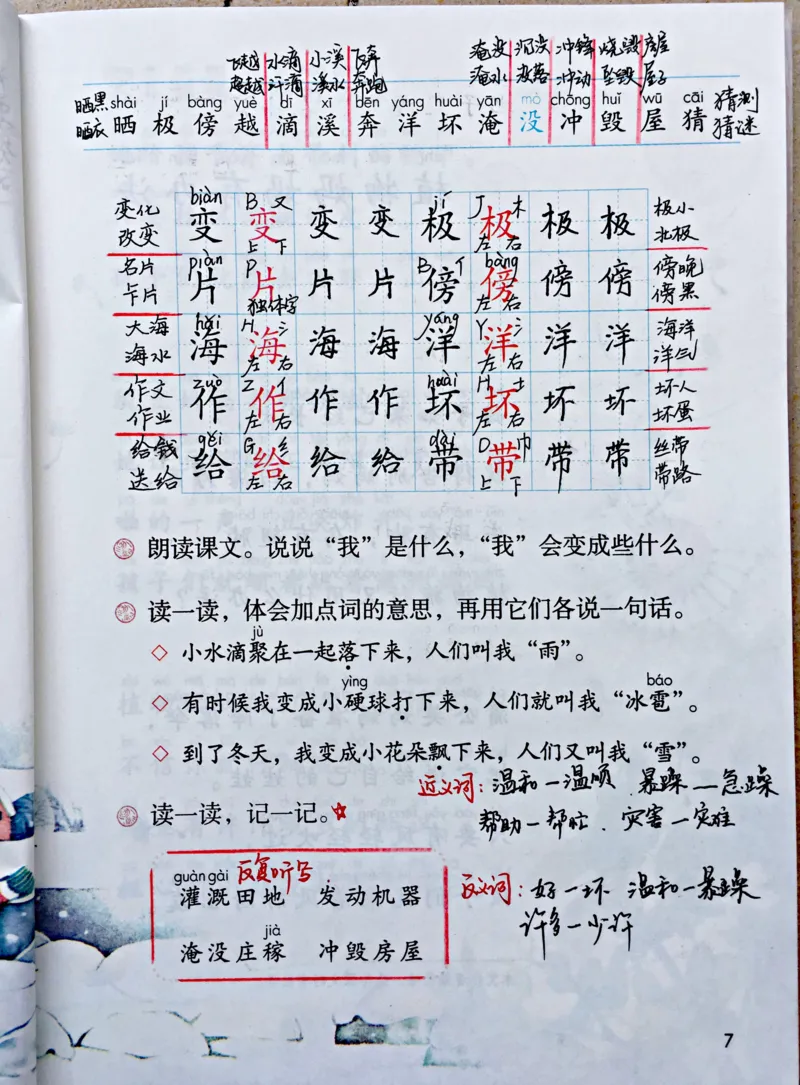 飞越 水滴 小溪 飞奔 淹没 沉没 冲锋 烧毁 房屋
超越 汗滴 溪水 奔跑 淹水 没落 冲动 坠毁 屋子
晒黑 shài jí bàng yuè dī xī bēn yáng huài yān mò chōng huǐ wū cāi 猜测
晒衣 晒 极 傍 越 滴 溪 奔 洋 坏 淹 没 冲 毁 屋 猜 猜谜
biàn B 又 jí J 木
变化 变 变 变 变 极 极 极 极 极小
改变 上 下 左 右 北极
piàn P B 亻 bàng
名片 片 片 片 片 傍 傍 傍 傍 傍晚
卡片 独体字 左 右 傍黑
hǎi H 氵 yáng Y 氵
大海 海 海 海 海 洋 洋 洋 洋 海洋
海水 左 右 左 右 洋气
zuò Z 亻 huài H 土
作文 作 作 作 作 坏 坏 坏 坏 坏人
作业 左 右 左 右 坏蛋
gěi G 纟 dài D 巾
给钱 给 给 给 给 带 带 带 带 丝带
送给 左 右 上 下 带路
朗读课文。说说“我”是什么，“我”会变成些什么。
读一读，体会加点词的意思，再用它们各说一句话。
jù
小水滴聚在一起落下来，人们叫我“雨”。
yìng báo
有时候我变成小硬球打下来，人们就叫我“冰雹”。
到了冬天，我变成小花朵飘下来，人们又叫我“雪”。
近义词：温和—温顺 暴躁—急躁
读一读，记一记。
帮助—帮忙 . 灾害—灾难
guàn gài 反复听写
灌溉田地 发动机器
反义词：好—坏 温和—暴躁
许多—少许
jià
淹没庄稼 冲毁房屋
7